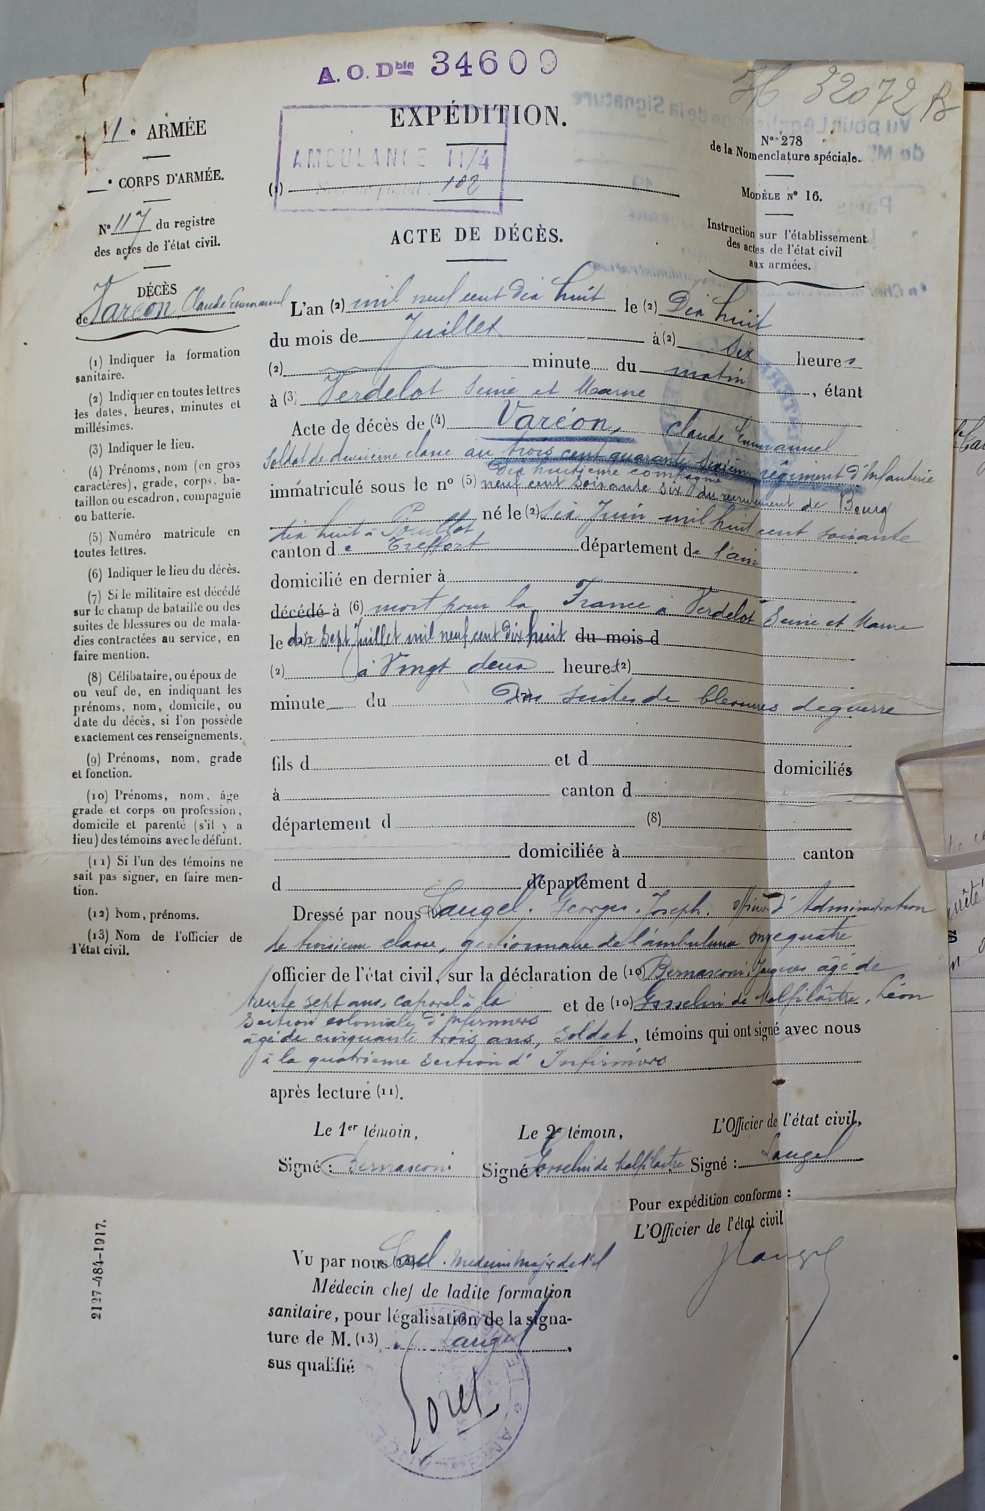 A. O. Dble 34609
32072 B
EXPÉDITION.
AMBULANCE 11/4
182
(1)
ACTE DE DÉCÈS.
ARMÉE
CORPS D'ARMÉE.
N° 117 du registre
des actes de l'état civil.
DÉCÈS
de Varéon Claude Emmanuel
(1) Indiquer la formation
sanitaire.
(2) Indiquer en toutes lettres
les dates, heures, minutes et
millésimes.
(3) Indiquer le lieu.
(4) Prénoms, nom (en gros
caractères), grade, corps, ba-
taillon ou escadron, compagnie
ou batterie.
(5) Numéro matricule en
toutes lettres.
(6) Indiquer le lieu du décès.
(7) Si le militaire est décédé
sur le champ de bataille ou des
suites de blessures ou de mala-
dies contractées au service, en
faire mention.
(8) Célibataire, ou époux de
ou veuf de, en indiquant les
prénoms, nom, domicile, ou
date du décès, si l'on possède
exactement ces renseignements.
(9) Prénoms, nom, grade
et fonction.
(10) Prénoms, nom, âge
grade et corps ou profession,
domicile et parenté (s'il y a
lieu) des témoins avec le défunt.
(11) Si l'un des témoins ne
sait pas signer, en faire men-
tion.
(12) Nom, prénoms.
(13) Nom de l'officier de
l'état civil.
2127-484-1917.
N° 278
de la Nomenclature spéciale.
MODÈLE N° 16.
Instruction sur l'établissement
des actes de l'état civil
aux armées.
L'an (2) mil neuf cent dix huit le (2) Dix huit
du mois de Juillet à (2) dix heures
(2) minute du matin, étant
à (3) Verdelot Seine et Marne
Acte de décès de (4) Varéon, Claude Emmanuel
Soldat de deuxième classe au trois cent quarante sixième régiment d'Infanterie
dix huitième compagnie
immatriculé sous le n° (5) neuf cent soixante six du recrutement de Bourg
né le (2) six Juin mil huit cent soixante
dix huit à
canton de Treffort département de l'ain
domicilié en dernier à
décédé à (6) mort pour la France à Verdelot Seine et Marne
le dix Sept Juillet mil neuf cent dix huit du mois d
(2) à Vingt deux heures (2)
minute du Des suites de blessures de guerre
fils d et d domiciliés
à canton d
département d (8)
domiciliée à canton
d département d
Dressé par nous Laugel. Georges. Joseph. officier d'Administration
de troisième classe, gestionnaire de l'ambulance onze quatre
officier de l'état civil, sur la déclaration de (10) Bernasconi, Jacques âgé de
trente sept ans, caporal à la et de (10) Gosselin de Malfilâtre, Léon
Section coloniale d'Infirmiers
âgé de cinquante trois ans, soldat, témoins qui ont signé avec nous
à la quatrième Section d'Infirmiers
après lecture (11).
Le 1er témoin, Le 2e témoin, L'Officier de l'état civil,
Signé : Bernasconi Signé : Gosselin de Malfilâtre Signé : Laugel
Pour expédition conforme :
L'Officier de l'état civil
Laugel
Vu par nous (12) Sorel. Medecin Major de
Médecin chef de ladite formation
sanitaire, pour légalisation de la signa-
ture de M. (13) Laugel,
sus qualifié
Sorel